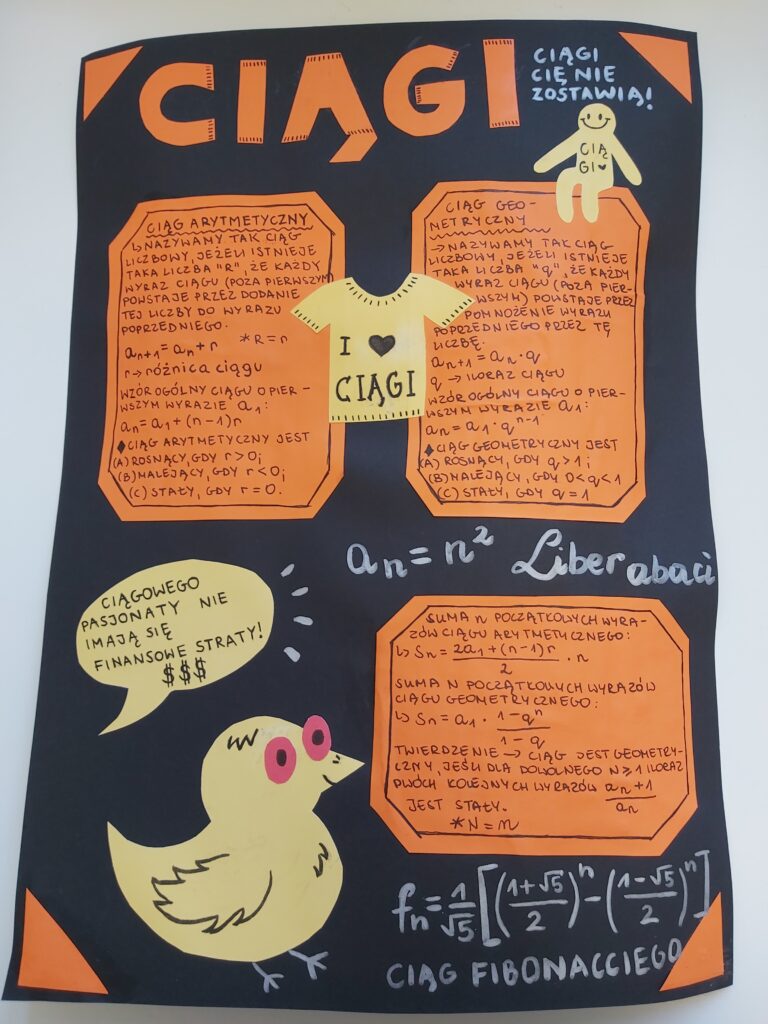 CIĄGI
CIĄGI
CIĘ NIE
ZOSTAWIĄ!
CIĄ
GI♥
CIĄG ARYTMETYCZNY
↳ NAZYWAMY TAK CIĄG
LICZBOWY, JEŻELI ISTNIEJE
TAKA LICZBA "R", ŻE KAŻDY
WYRAZ CIĄGU (POZA PIERWSZYM)
POWSTAJE PRZEZ DODANIE
TEJ LICZBY DO WYRAZU
POPRZEDNIEGO.
aₙ₊₁ = aₙ + r *R = r
r → różnica ciągu
WZÓR OGÓLNY CIĄGU O PIER-
WSZYM WYRAZIE a₁:
aₙ = a₁ + (n-1)r
♦ CIĄG ARYTMETYCZNY JEST
(A) ROSNĄCY, GDY r > 0;
(B) MALEJĄCY, GDY r < 0;
(C) STAŁY, GDY r = 0.
I ♥
CIĄGI
CIĄG GEO-
METRYCZNY
→ NAZYWAMY TAK CIĄG
LICZBOWY, JEŻELI ISTNIEJE
TAKA LICZBA "q", ŻE KAŻDY
WYRAZ CIĄGU (POZA PIER-
WSZYM) POWSTAJE PRZEZ
POMNOŻENIE WYRAZU
POPRZEDNIEGO PRZEZ TĘ
LICZBĘ.
aₙ₊₁ = aₙ · q
q → ILORAZ CIĄGU
WZÓR OGÓLNY CIĄGU O PIER-
WSZYM WYRAZIE a₁:
aₙ = a₁ · qⁿ⁻¹
♦ CIĄG GEOMETRYCZNY JEST
(A) ROSNĄCY, GDY q > 1;
(B) MALEJĄCY, GDY 0 < q < 1
(C) STAŁY, GDY q = 1
aₙ = n² Liber abaci
CIĄGOWEGO
PASJONATY NIE
IMAJĄ SIĘ
FINANSOWE STRATY!
$$$
SUMA n POCZĄTKOWYCH WYRA-
ZÓW CIĄGU ARYTMETYCZNEGO:
↳ Sₙ = (2a₁ + (n-1)r)/2 · n
SUMA N POCZĄTKOWYCH WYRAZÓW
CIĄGU GEOMETRYCZNEGO:
↳ Sₙ = a₁ · (1-qⁿ)/(1-q)
TWIERDZENIE → CIĄG JEST GEOMETRY-
CZNY, JEŚLI DLA DOWOLNEGO N ≥ 1 ILORAZ
DWÓCH KOLEJNYCH WYRAZÓW (aₙ+1)/aₙ
JEST STAŁY.
*N = n
fₙ = 1/√5 [((1+√5)/2)ⁿ - ((1-√5)/2)ⁿ]
CIĄG FIBONACCIEGO